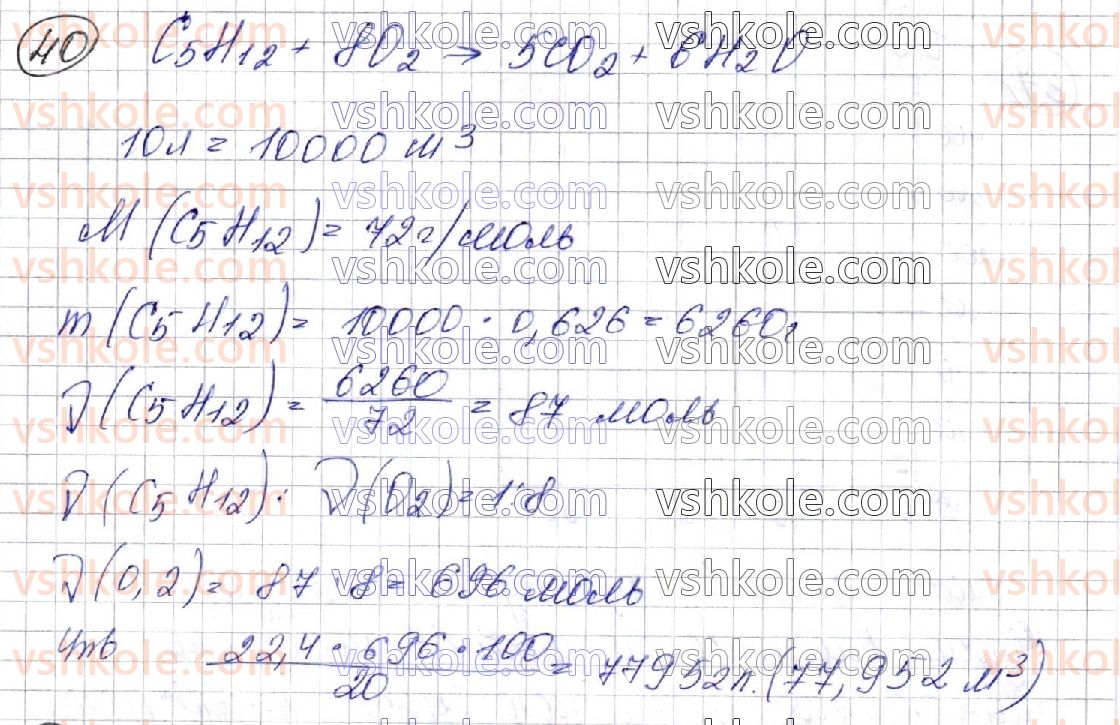 40 C5H12 + 8O2 → 5CO2 + 6H2O
10л = 10000 м³
M (C5H12) = 72 г/моль
m (C5H12) = 10000 · 0,626 = 6260г
ν (C5H12) = 6260/72 = 87 моль
ν (C5H12) : ν (O2) = 1:8
ν (O,2) = 87 · 8 = 696 моль
22,4 · 696 · 100/20 = 77952л. (77,952 м³)
vshkole.com